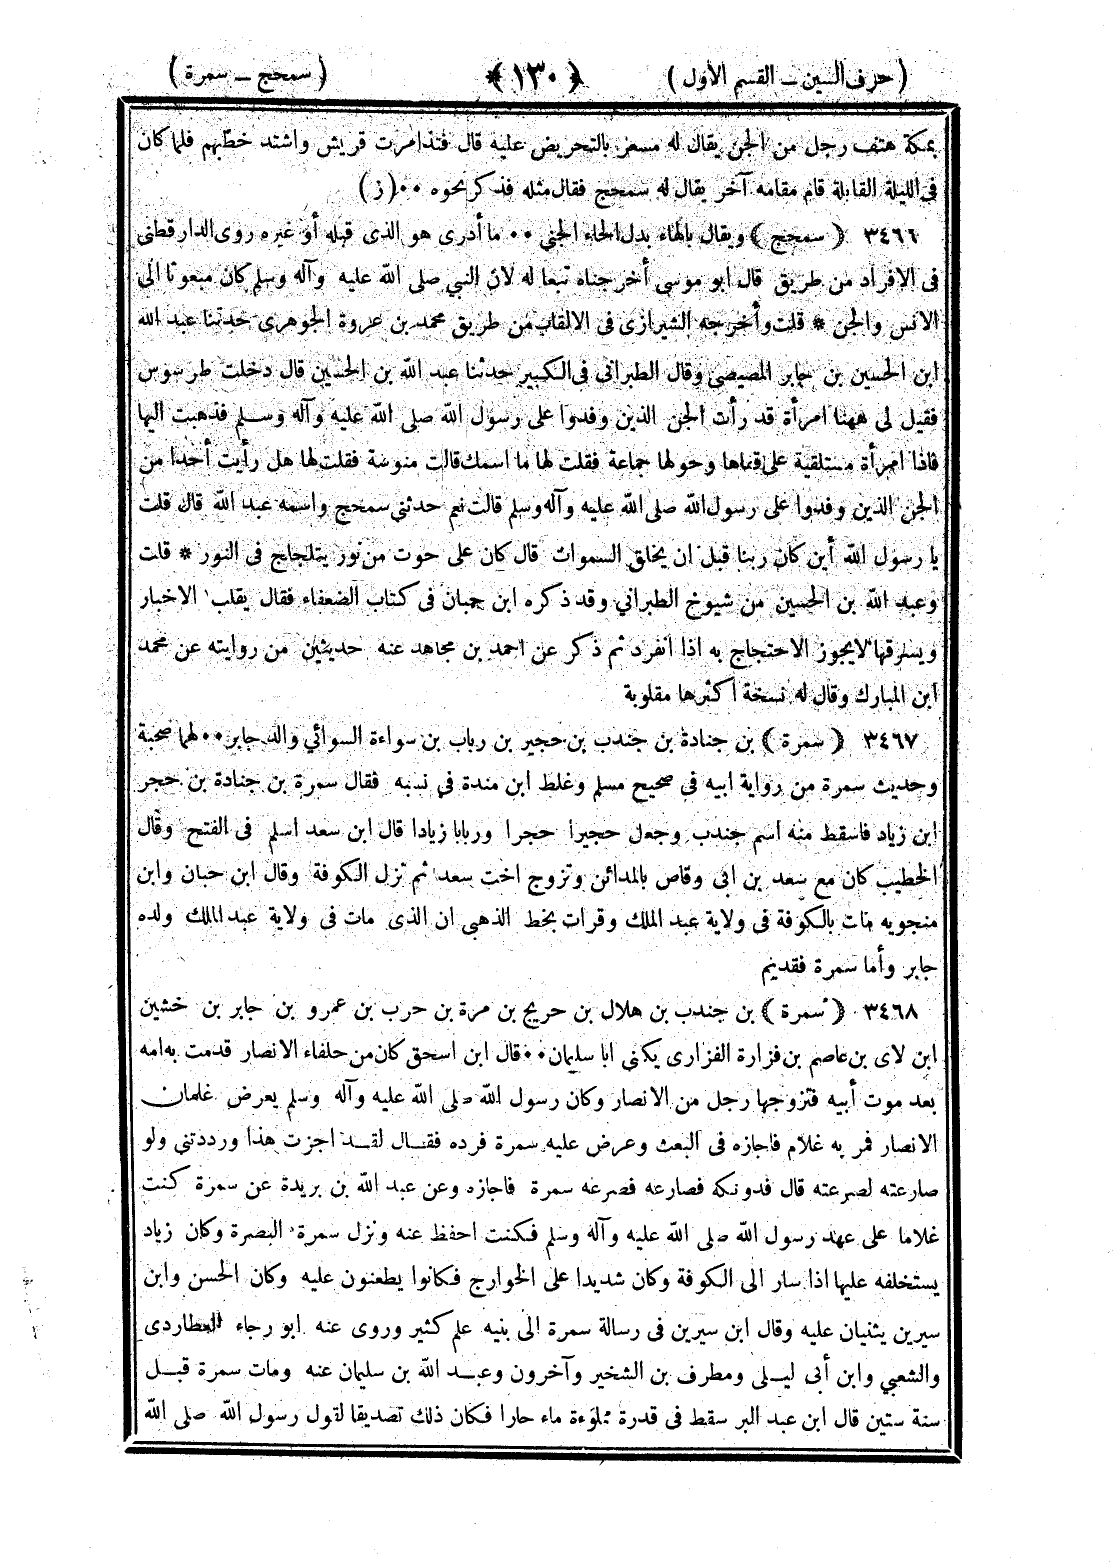 (حرف السين ــ القسم الأول) ﴿١٣٠﴾ (سمحج ــ سمرة)
بمكة هتف رجل من الجن يقال له مسعر بالتحريض عليه قال فتذامرت قريش واشتد خطبهم فلما كان
فى الليلة القابلة قام مقامه آخر يقال له سمحج فقال مثله فذكر نحوه ٠٠(ز)
٣٤٦٦ ﴿سمحج﴾ ويقال بالهاء بدل الحاء الجني ٠٠ ما أدرى هو الذى قبله أو غيره روى الدارقطنى
فى الافراد من طريق قال ابو موسى أخرجناه تبعا له لان النبي صلى الله عليه وآله وسلم كان مبعوثا الى
الانس والجن * قلت وأخرجه الشيرازى فى الالقاب من طريق محمد بن عروة الجوهرى حدثنا عبد الله
ابن الحسين بن جابر المصيصى وقال الطبرانى فى الكبير حدثنا عبد الله بن الحسين قال دخلت طرسوس
فقيل لى ههنا امرأة قد رأت الجن الذين وفدوا على رسول الله صلى الله عليه وآله وسلم فذهبت اليها
فاذا امرأة مستلقية على قفاها وحولها جماعة فقلت لها ما اسمك قالت منوسة فقلت لها هل رأيت أحدا من
الجن الذين وفدوا على رسول الله صلى الله عليه وآله وسلم قالت نعم حدثني سمحج واسمه عبد الله قال قلت
يا رسول الله أين كان ربنا قبل ان يخلق السموات قال كان على حوت من نور يتلجلج فى النور * قلت
وعبد الله بن الحسين من شيوخ الطبراني وقد ذكره ابن حبان فى كتاب الضعفاء فقال يقلب الاخبار
ويسرقها لايجوز الاحتجاج به اذا انفرد ثم ذكر عن احمد بن مجاهد عنه حديثين من روايته عن محمد
ابن المبارك وقال له نسخة أكثرها مقلوبة
٣٤٦٧ ﴿سمرة﴾ بن جنادة بن جندب بن حجير بن رباب بن سواءة السوائي والد جابر ٠٠ لهما صحبة
وحديث سمرة من رواية ابيه فى صحيح مسلم وغلط ابن مندة في نسبه فقال سمرة بن جنادة بن حجر
ابن زياد فاسقط منه اسم جندب وجعل حجيرا حجرا وربابا زيادا قال ابن سعد اسلم فى الفتح وقال
الخطيب كان مع سعد بن ابى وقاص بالمدائن وتزوج اخت سعد ثم نزل الكوفة وقال ابن حبان وابن
منجويه مات بالكوفة فى ولاية عبد الملك وقرات بخط الذهبى ان الذى مات فى ولاية عبد الملك ولده
جابر وأما سمرة فقديم
٣٤٦٨ ﴿سمرة﴾ بن جندب بن هلال بن حريج بن مرة بن حرب بن عمرو بن جابر بن خشين
ابن لاى بن عاصم بن فزارة الفزارى يكنى ابا سليمان ٠٠ قال ابن اسحق كان من حلفاء الانصار قدمت به امه
بعد موت أبيه فتزوجها رجل من الانصار وكان رسول الله صلى الله عليه وآله وسلم يعرض غلمان
الانصار فمر به غلام فاجازه فى البعث وعرض عليه سمرة فرده فقال لقد اجزت هذا ورددتنى ولو
صارعته لصرعته قال فدونكه فصارعه فصرعه سمرة فاجازه وعن عبد الله بن بريدة عن سمرة كنت
غلاما على عهد رسول الله صلى الله عليه وآله وسلم فكنت احفظ عنه ونزل سمرة البصرة وكان زياد
يستخلفه عليها اذا سار الى الكوفة وكان شديدا على الخوارج فكانوا يطعنون عليه وكان الحسن وابن
سيرين يثنيان عليه وقال ابن سيرين فى رسالة سمرة الى بنيه علم كثير وروى عنه ابو رجاء العطاردى
والشعبي وابن أبى ليلى ومطرف بن الشخير وآخرون وعبد الله بن سليمان عنه ومات سمرة قبل
سنة ستين قال ابن عبد البر سقط فى قدرة مملوءة ماء حارا فكان ذلك تصديقا لقول رسول الله صلى الله